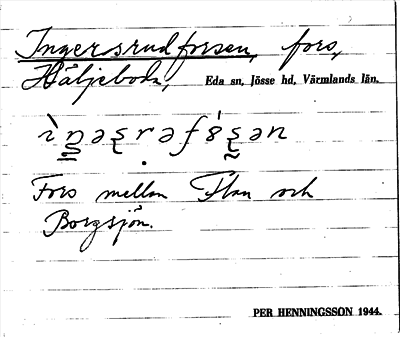 Ingersrudforsen, fors,
Häljeboda, Eda sn, Jösse hd, Värmlands län.
Fors mellan Flan och
Borgsjön.
PER HENNINGSSON 1944.